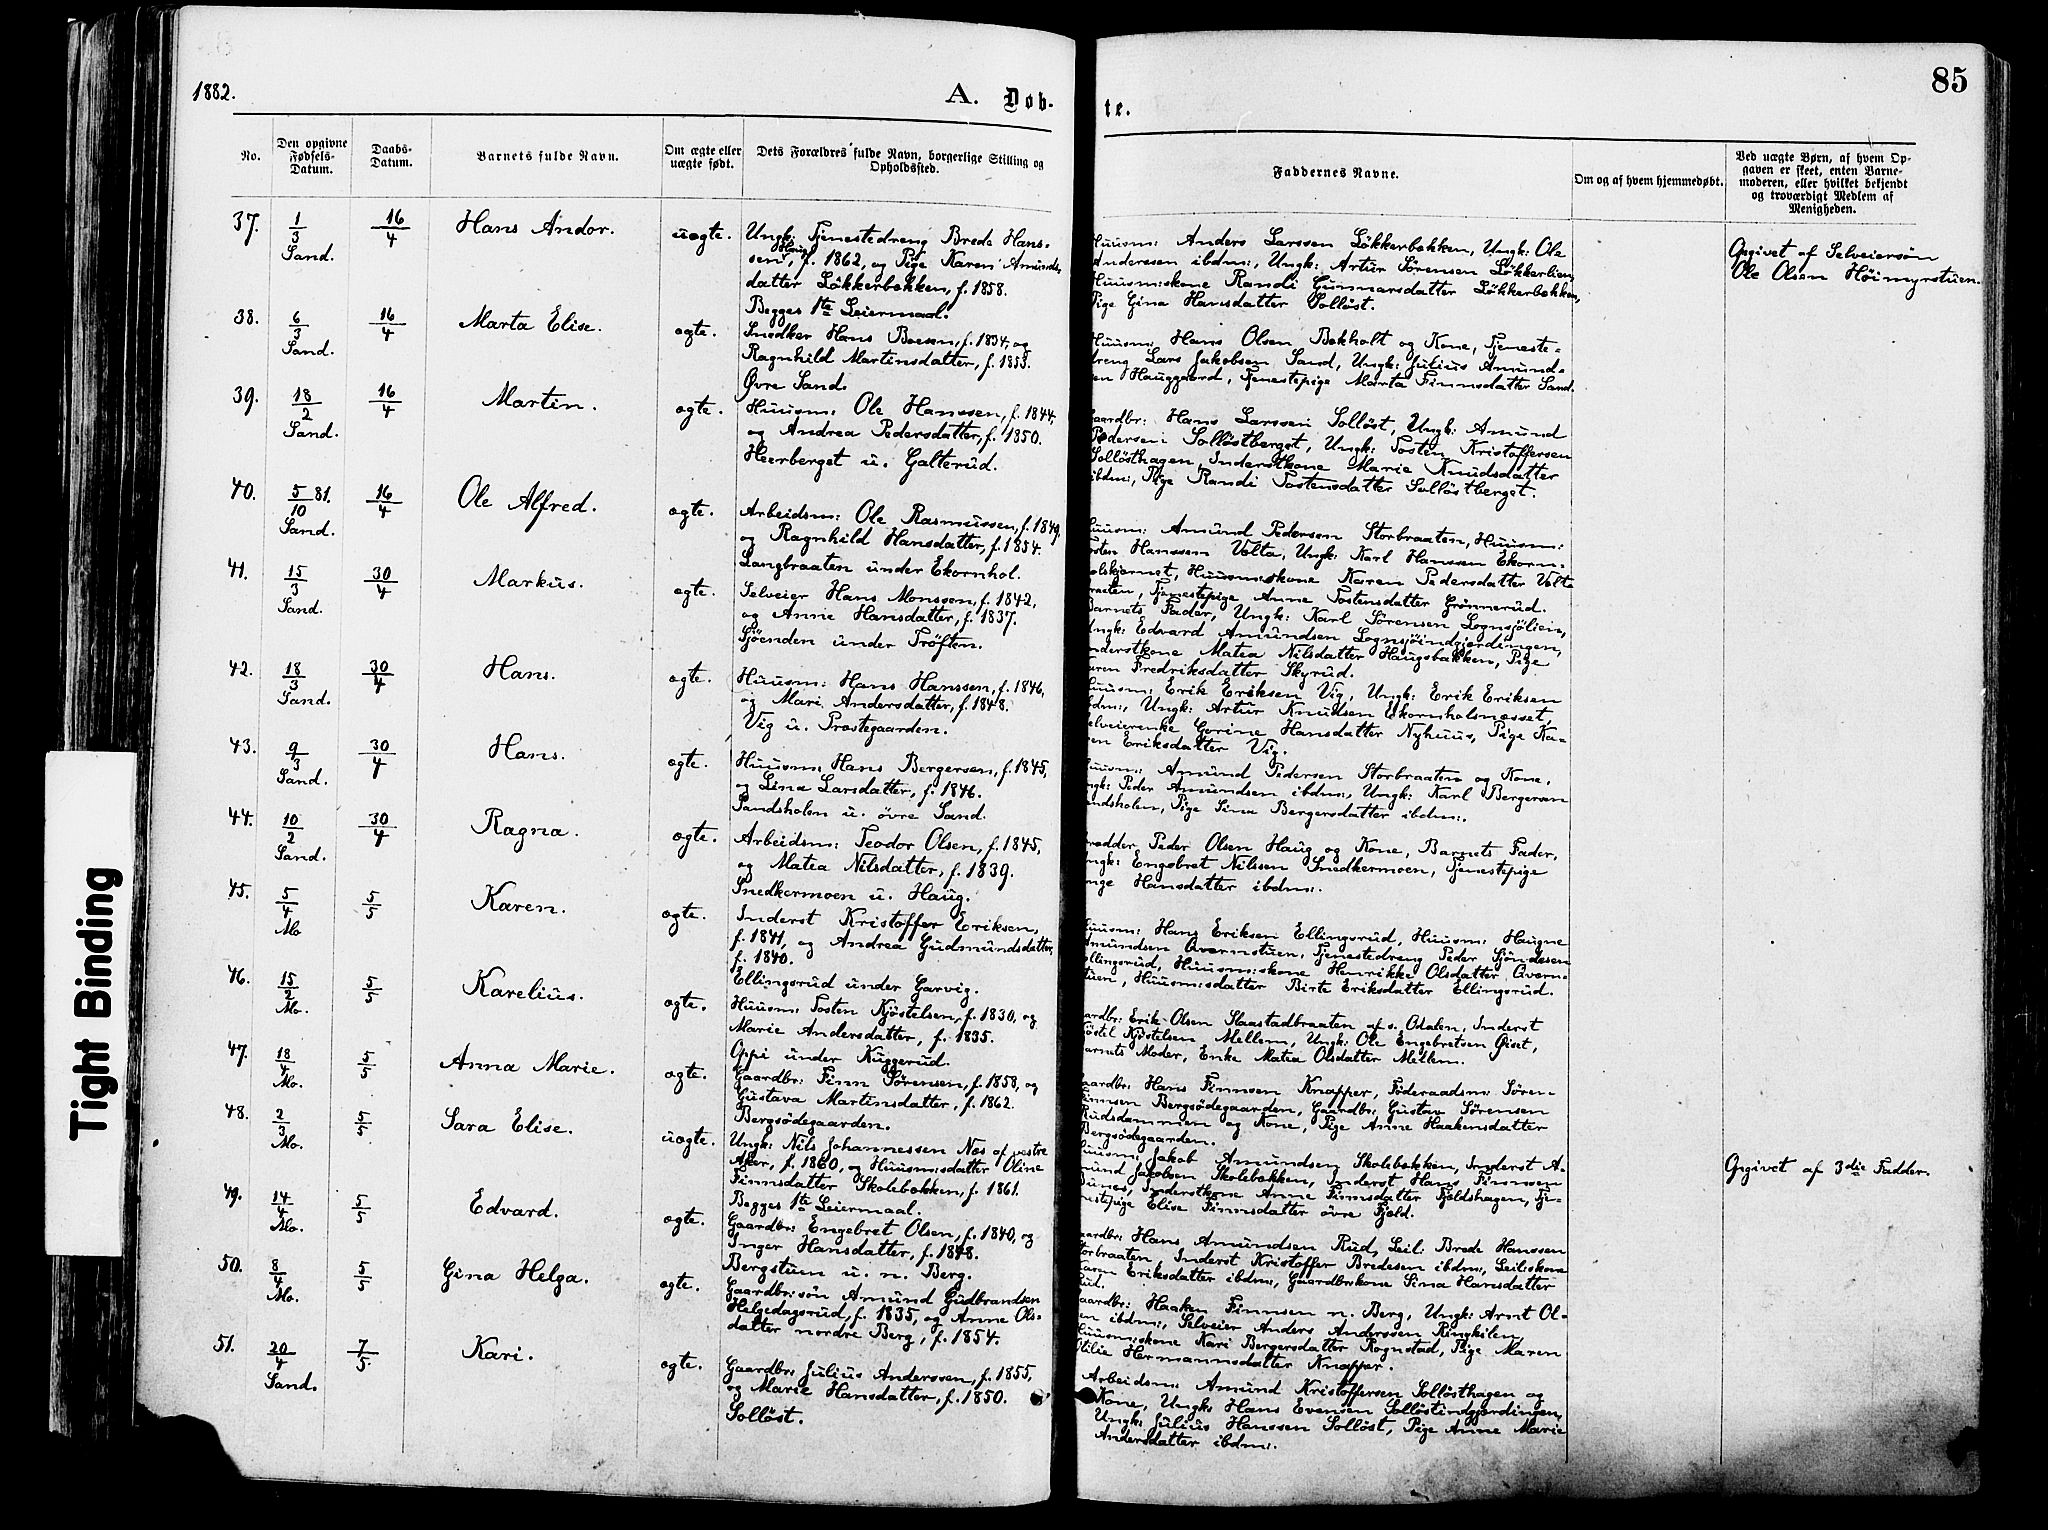 1882.
A. Døb-
te.
85
No.
Den opgivne Fødsels-Datum.
Daabs-Datum.
Barnets fulde Navn.
Om ægte eller uægte født.
Dets Forældres fulde Navn, borgerlige Stilling og Opholdssted.
Faddernes Navne.
Om og af hvem hjemmedøbt.
Ved uægte Børn, af hvem Op-
gaven er skeet, enten Barne-
moderen, eller hvilket bekjendt
og troværdigt Medlem af
Menigheden.
37. 1/3 Sand. 16/4 Hans Andor. uægte.
Ungk: Tjenestedreng Brede Hans-
sen Haug, f. 1862, og Pige Karen Amunds-
datter Løkkerbækken, f. 1858.
Begges 1te Leiermaal.
Huusm: Anders Larssen Løkkerbækken, Ungk: Ole
Anderssen ibdm:, Ungk: Artur Sørensen Løkkerlien,
Huusm:skone Randi Gunnarsdatter Løkkerbækken,
Pige Gina Hansdatter Solløst.
Opgivet af Selveiersøn
Ole Olsen Høimyrstuen.
38. 6/3 Sand. 16/4 Marta Elise. ægte.
Snedker Hans Boesen, f. 1834, og
Ragnhild Martinsdatter, f. 1853.
Øvre Sand.
Huusm: Hans Olsen Bekholt og Kone, Tjeneste-
dreng Lars Jakobsen Sand, Ungk: Julius Amund-
sen Hauggaard, Tjenestepige Marta Finnsdatter Sand.
39. 18/2 Sand. 16/4 Martin. ægte.
Huusm: Ole Hanssen, f. 1844,
og Andrea Pedersdatter, f. 1850.
Heerberget u. Galterud.
Gaardbr: Hans Larssen Solløst, Ungk: Amund
Pedersen Solløstberget, Ungk: Tosten Kristoffersen
Solløsthagen, Inderstkone Marie Knudsdatter
ibdm:, Pige Randi Tostensdatter Solløstberget.
40. 5/10 81. Sand. 16/4 Ole Alfred. ægte.
Arbeidsm: Ole Rasmussen, f. 1849,
og Ragnhild Hansdatter, f. 1854.
Langbraaten under Ekornhol.
Huusm: Amund Pedersen Storbraaten, Huusm:
Tosten Hanssen Volta, Ungk: Karl Hanssen Ekorn-
holskjærnet, Huusm:skone Karen Pedersdatter Volta
braaten, Tjenestepige Anne Tostensdatter Grønnerud.
41. 15/3 Sand. 30/4 Markus. ægte.
Selveier Hans Monssen, f. 1842,
og Anne Hansdatter, f. 1837.
Sjøenden under Trøften.
Barnets Fader, Ungk: Karl Sørensen Lognsjølien,
Ungk: Edvard Amundsen Lognsjøindgjerdingen,
Inderstkone Matea Nilsdatter Haugsbakken, Pige
Karen Fredriksdatter Skyrud.
42. 18/3 Sand. 30/4 Hans. ægte.
Huusm: Hans Hanssen, f. 1846,
og Mari Andersdatter, f. 1848.
Vig u. Præstegaarden.
Huusm: Erik Eriksen Vig, Ungk: Erik Eriksen
ibdm:, Ungk: Artur Knudsen Ekornholsnæsset,
Selveierenke Gorine Hansdatter Nyhuus, Pige Ka-
ren Eriksdatter Vig.
43. 9/3 Sand. 30/4 Hans. ægte.
Huusm: Hans Bergersen, f. 1845,
og Lina Larsdatter, f. 1846.
Sandsholen u. øvre Sand.
Huusm: Amund Pedersen Storbraaten og Kone,
Ungk: Peder Amundsen ibdm:, Ungk: Karl Bergersen
Sandsholen, Pige Sina Bergersdatter ibdm:.
44. 10/2 Sand. 30/4 Ragna. ægte.
Arbeidsm: Teodor Olsen, f. 1845,
og Matea Nilsdatter, f. 1839.
Snedkermoen u. Haug.
Peder Olsen Haug og Kone, Barnets Fader,
Ungk: Engebret Nilssen Snedkermoen, Tjenestepige
Inge Hansdatter ibdm:.
45. 5/4 Mo 5/5 Karen. ægte.
Inderst Kristoffer Eriksen,
f. 1841, og Andrea Gudmundsdatter,
f. 1840.
Ellingsrud under Garvig.
Huusm: Hans Eriksen Ellingsrud, Huusm: Haagne
Amundsen Overnstuen, Tjenestedreng Peder Sjøndesen
Ellingsrud, Huusm:skone Henrikke Olsdatter Overn-
stuen, Huusm:sdatter Birte Eriksdatter Ellingsrud.
46. 15/2 Mo. 5/5 Karelius. ægte.
Huusm: Tosten Kjøstelsen, f. 1830, og
Marie Andersdatter, f. 1835.
Oppi under Kuggerud.
Gaardbr: Erik Olsen Slaastadbraaten af s. Odalen, Inderst
Kjøstel Kjøstelsen Mellem, Ungk: Ole Engebretsen Øiset,
Barnets Moder, Enke Matea Olsdatter Mellem.
47. 18/4 Mo. 5/5 Anna Marie. ægte.
Gaardbr: Finn Sørensen, f. 1858, og
Gustava Martinsdatter, f. 1862.
Bergsødegaarden.
Gaardbr: Hans Finnsen Knapper, Føderaadsm: Søren
Finnsen Bergsødegaarden, Gaardbr: Gustav Sørensen
Rudsdammen og Kone, Pige Anne Haakensdatter
Bergsødegaarden.
48. 2/3 Mo. 5/5 Sara Elise. uægte.
Ungk: Nils Johannessen Næs af vestre
Aker, f. 1860, og Huusm:sdatter Oline
Finnsdatter Skolebækken, f. 1861.
Begges 1te Leiermaal.
Huusm: Jakob Amundsen Skolebækken, Inderst A-
mund Jakobsen Skolebækken, Inderst Hans Finnsen
Bunes, Inderstkone Anne Finnsdatter Fjeldshagen, Tje-
nestepige Elise Finnsdatter øvre Fjeld.
Opgivet af 3die Fadder.
49. 14/4 Mo. 5/5 Edvard. ægte.
Gaardbr: Engebret Olsen, f. 1840, og
Inger Hansdatter, f. 1848.
Bergstuen u. n. Berg.
Gaardbr: Hans Amundsen Rud, Leil: Brede Hanssen
Storbraaten, Inderst Kristoffer Bredesen ibdm:, Leil:skone
Karen Eriksdatter ibdm:, Gaardbr:skone Sina Hansdatter
Rud.
50. 8/4 Mo. 5/5 Gina Helga. ægte.
Gaardbr:søn Amund Gudbrandsen
Helgedagsrud, f. 1835, og Anne Ols-
datter nordre Berg, f. 1854.
Gaardbr: Haaken Finnsen n. Berg, Ungk: Arnt Ol-
sen ibdm:, Selveier Anders Anderssen Ringkilen,
Huusm:skone Kari Bergersdatter Rognstad, Pige Maren
Otilie Hermannsdatter Knapper.
51. 20/4 Sand. 7/5. Kari. ægte.
Gaardbr: Julius Anderssen, f. 1855,
og Marie Hansdatter, f. 1850.
Solløst.
Arbeidsm: Amund Kristoffersen Solløsthagen og
Kone, Ungk: Hans Evensen Solløstindgjerdingen,
Ungk: Julius Hanssen Solløst, Pige Anne Marie
Andersdatter ibdm:.
Tight Binding